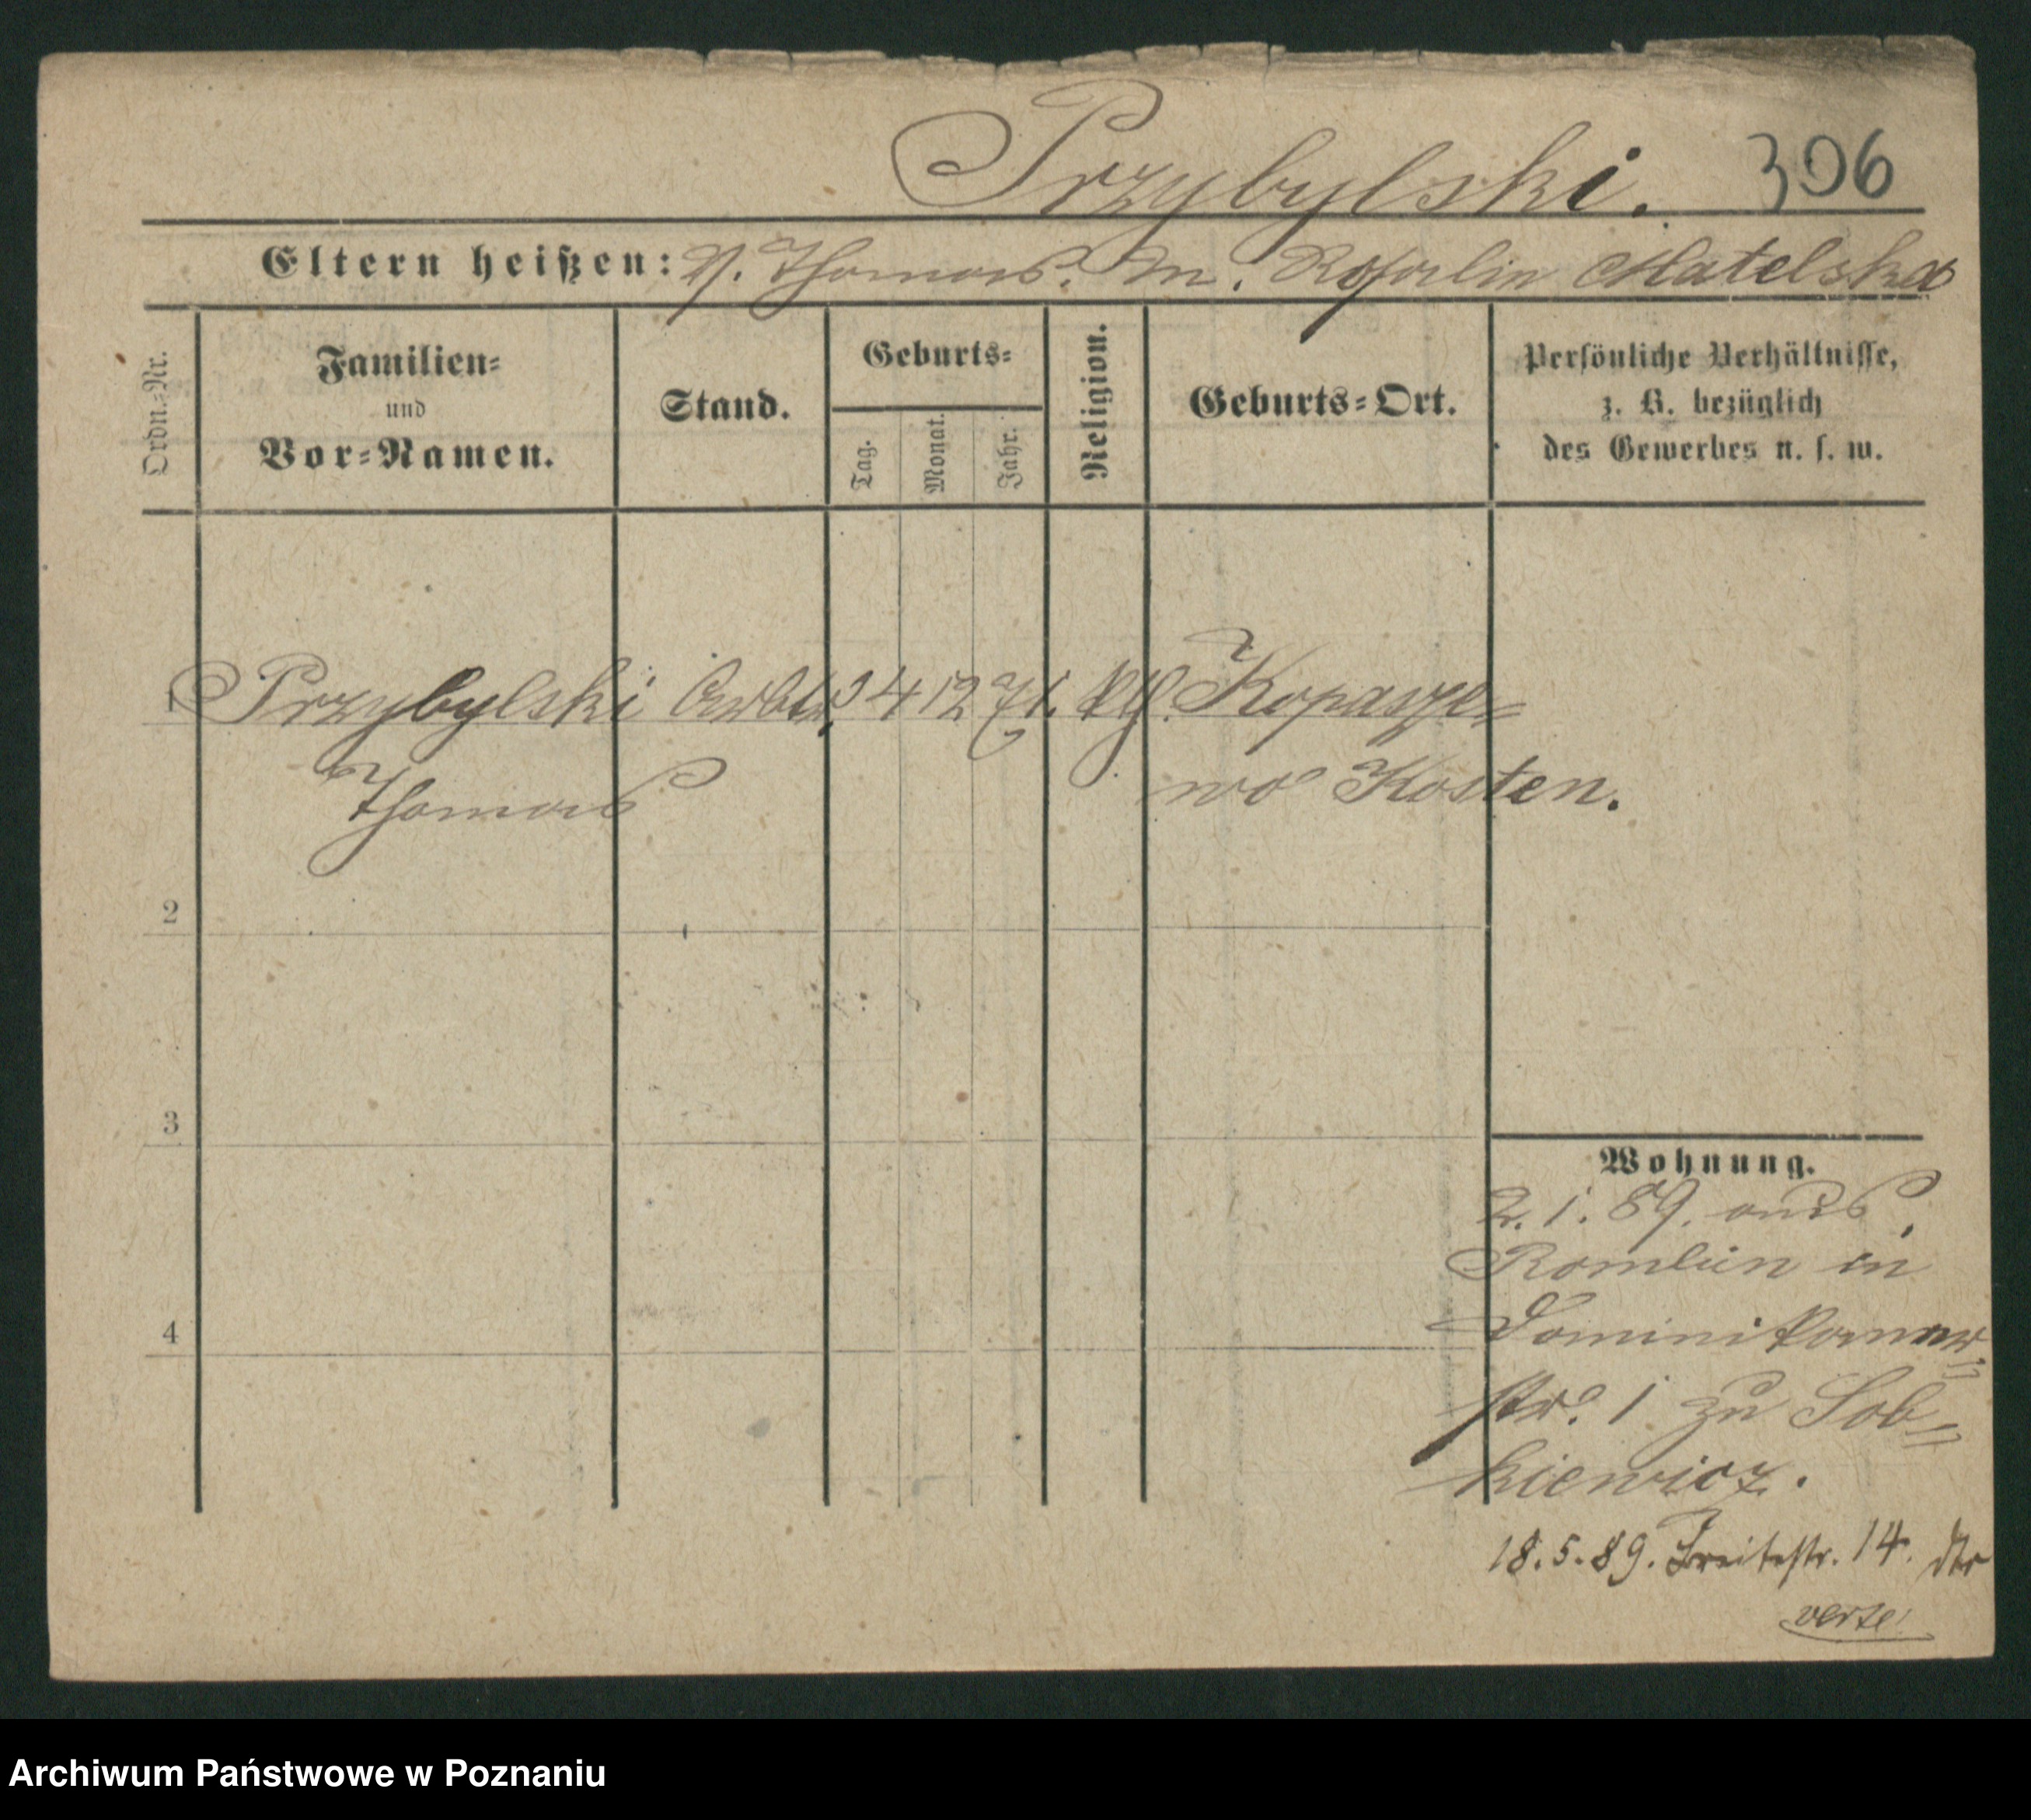 Przybylski. 306
Eltern heißen: V. Thomas. M. Rosalia Matelska
Ordn.-Nr.
Familien-
und
Vor-Namen.
Stand.
Geburts-
Tag.
Monat.
Jahr.
Religion.
Geburts-Ort.
Persönliche Verhältnisse,
z. B. bezüglich
des Gewerbes u. s. w.
1 Przybylski 12 71. Kopasze=
Thomas wo Kosten.
2
3
4
Wohnung.
2. 1. 89. aus
in
Dominikaner=
str. 1 zu Sob=
kiewicz.
18. 5. 89. Breitestr. 14.
Archiwum Państwowe w Poznaniu